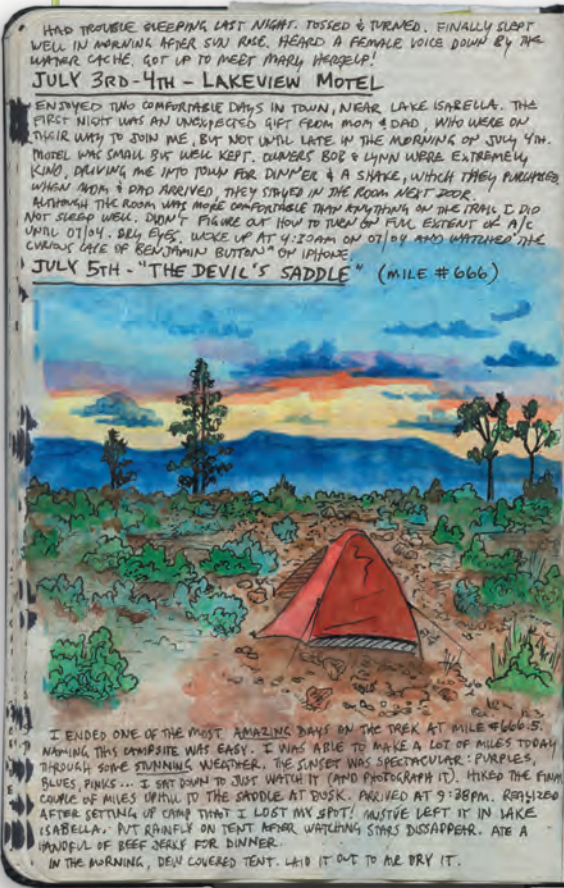 HAD TROUBLE SLEEPING LAST NIGHT. TOSSED & TURNED. FINALLY SLEPT
WELL IN MORNING AFTER SUN ROSE. HEARD A FEMALE VOICE DOWN BY THE
WATER CACHE. GOT UP TO MEET MARY HERSELF!
JULY 3RD-4TH - LAKEVIEW MOTEL
ENJOYED TWO COMFORTABLE DAYS IN TOWN, NEAR LAKE ISABELLA. THE
FIRST NIGHT WAS AN UNEXPECTED GIFT FROM MOM & DAD, WHO WERE ON
THEIR WAY TO JOIN ME, BUT NOT UNTIL LATE IN THE MORNING ON JULY 4TH.
MOTEL WAS SMALL BUT WELL KEPT. OWNERS BOB & LYNN WERE EXTREMELY
KIND, DRIVING ME INTO TOWN FOR DINNER & A SHAKE, WHICH THEY PURCHASED.
WHEN MOM & DAD ARRIVED, THEY STAYED IN THE ROOM NEXT DOOR.
ALTHOUGH THE ROOM WAS MORE COMFORTABLE THAN ANYTHING ON THE TRAIL I DID
NOT SLEEP WELL. DIDN'T FIGURE OUT HOW TO TURN ON FULL EXTENT OF A/C
UNTIL 07/04. DRY EYES. WOKE UP AT 4:30AM ON 07/04 AND WATCHED "THE
CURIOUS CASE OF BENJAMIN BUTTON" ON IPHONE.
JULY 5TH - "THE DEVIL'S SADDLE" (MILE #666)
I ENDED ONE OF THE MOST AMAZING DAYS ON THE TREK AT MILE #666.5.
NAMING THIS CAMPSITE WAS EASY. I WAS ABLE TO MAKE A LOT OF MILES TODAY
THROUGH SOME STUNNING WEATHER. THE SUNSET WAS SPECTACULAR: PURPLES,
BLUES, PINKS... I SAT DOWN TO JUST WATCH IT (AND PHOTOGRAPH IT). HIKED THE FINAL
COUPLE OF MILES UPHILL TO THE SADDLE AT DUSK. ARRIVED AT 9:38PM. REALIZED
AFTER SETTING UP CAMP THAT I LOST MY SPOT! MUSTVE LEFT IT IN LAKE
ISABELLA. PUT RAINFLY ON TENT AFTER WATCHING STARS DISSAPPEAR. ATE A
HANDFUL OF BEEF JERKY FOR DINNER.
IN THE MORNING, DEW COVERED TENT. LAID IT OUT TO AIR DRY IT.